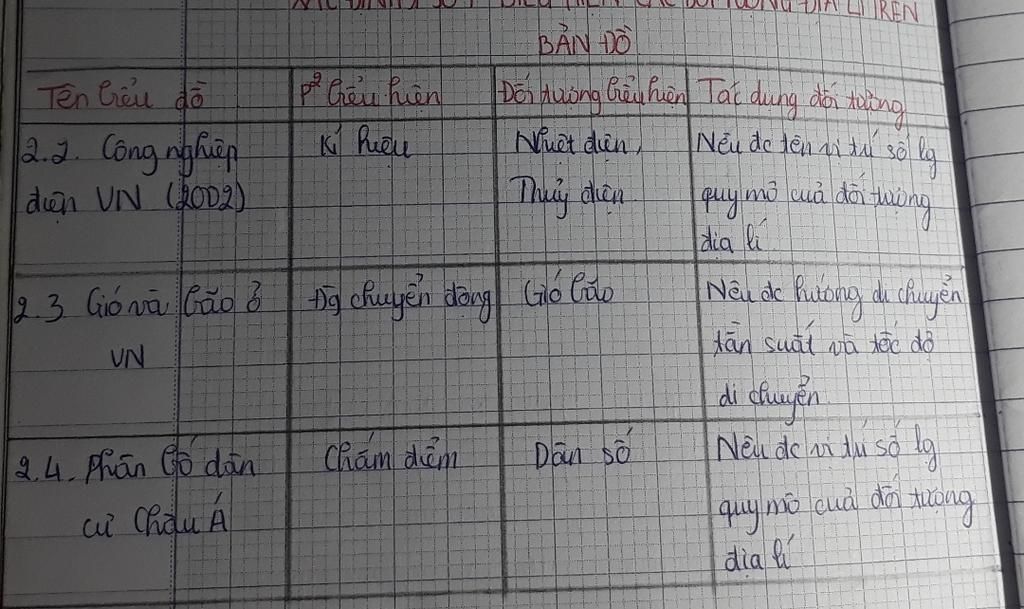 XÁC ĐỊNH 1 SỐ P² BIỂU HIỆN CÁC ĐỐI TƯỢNG ĐỊA LÍ TRÊN
BẢN ĐỒ
Tên biểu đồ
P² biểu hiện
Đối tượng biểu hiện
Tác dụng đối tượng
2.2. Công nghiệp
điện VN (2002)
Kí hiệu
Nhiệt điện,
Thuỷ điện
Nêu đc tên vị trí số lg
quy mô của đối tượng
địa lí
2.3 Gió và bão ở
VN
Đg chuyển động
Gió bão
Nêu đc hướng di chuyển
tần suất và tốc độ
di chuyển
2.4. Phân bố dân
cư Châu Á
Chấm điểm
Dân số
Nêu đc vị trí số lg
quy mô của đối tượng
địa lí